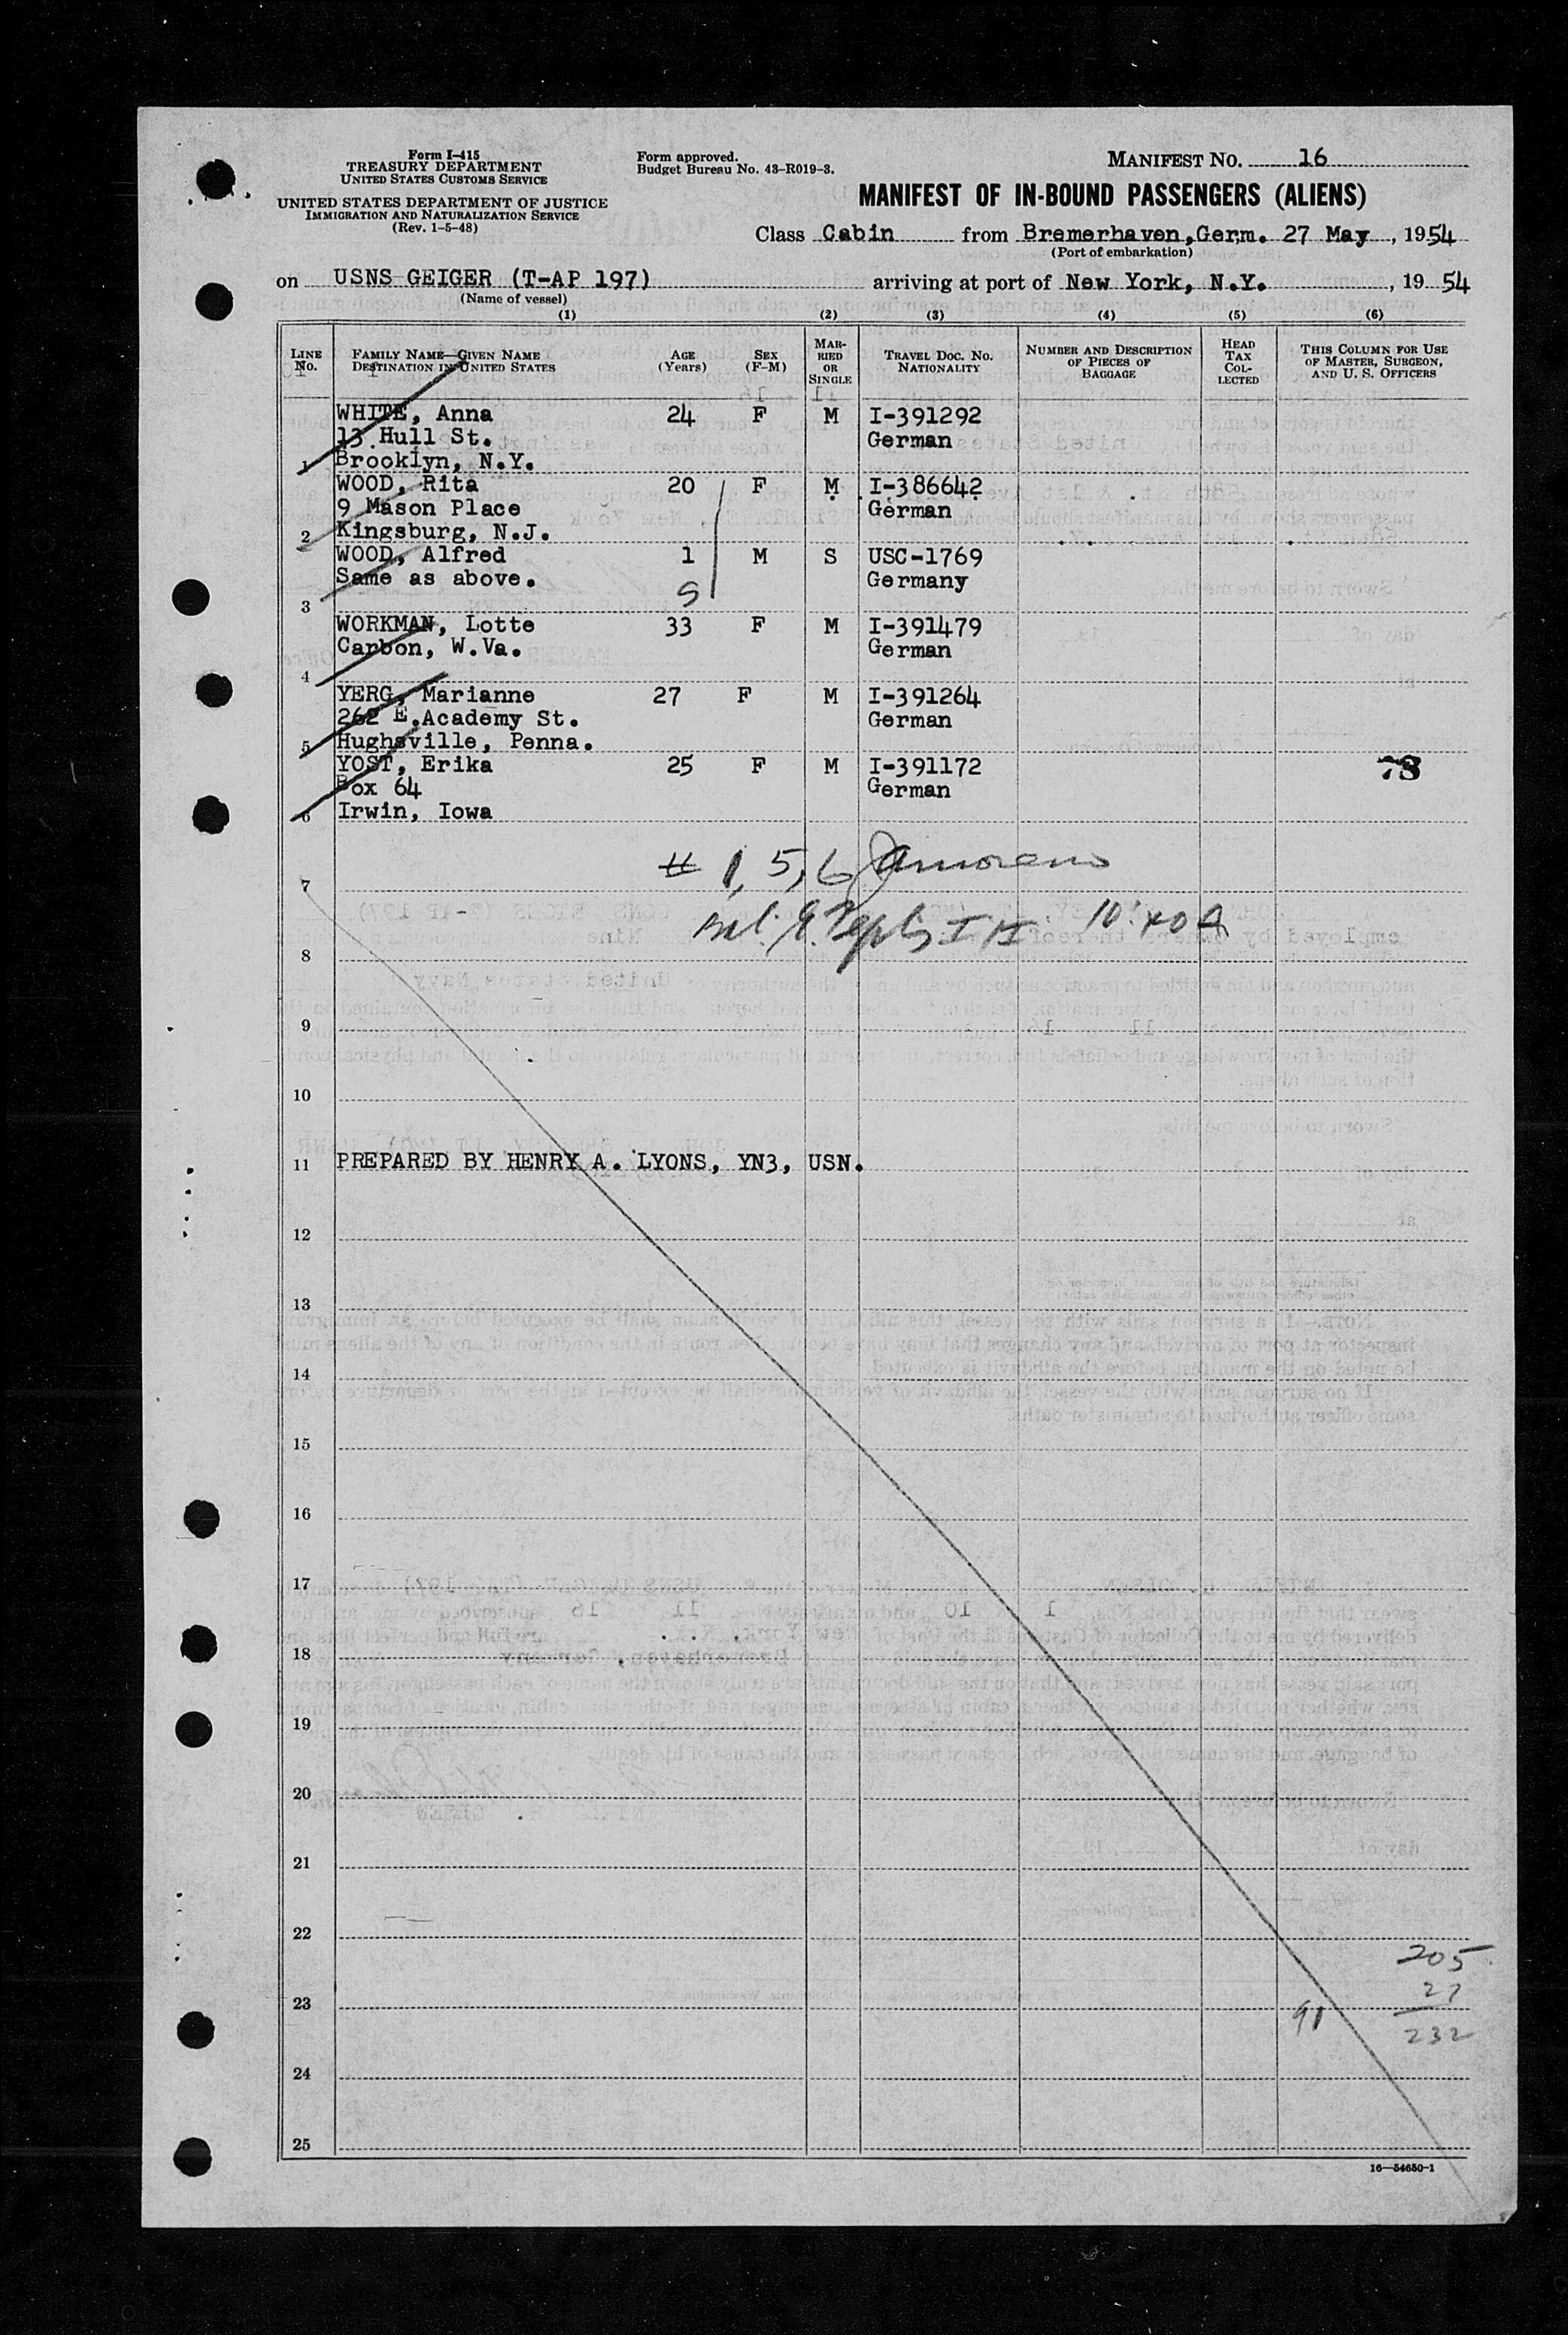 Form I-415
TREASURY DEPARTMENT
UNITED STATES CUSTOMS SERVICE
UNITED STATES DEPARTMENT OF JUSTICE
IMMIGRATION AND NATURALIZATION SERVICE
(Rev. 1-5-48)
Form approved.
Budget Bureau No. 43-R019-3.
MANIFEST NO. 16
MANIFEST OF IN-BOUND PASSENGERS (ALIENS)
Class Cabin from Bremerhaven, Germ. 27 May, 1954
(Port of embarkation)
on USNS GEIGER (T-AP 197) arriving at port of New York, N.Y., 19 54
(Name of vessel)
(1) (2) (3) (4) (5) (6)
LINE No. FAMILY NAME—GIVEN NAME DESTINATION IN UNITED STATES AGE (Years) SEX (F-M) MARRIED OR SINGLE TRAVEL DOC. NO. NATIONALITY NUMBER AND DESCRIPTION OF PIECES OF BAGGAGE HEAD TAX COLLECTED THIS COLUMN FOR USE OF MASTER, SURGEON, AND U. S. OFFICERS
WHITE, Anna 24 F M I-391292
13 Hull St. German
1 Brooklyn, N.Y.
WOOD, Rita 20 F M I-386642
9 Mason Place German
2 Kingsburg, N.J.
WOOD, Alfred 1 M S USC-1769
Same as above. Germany
3
WORKMAN, Lotte 33 F M I-391479
Carbon, W.Va. German
4
YERG, Marianne 27 F M I-391264
262 E.Academy St. German
5 Hughsville, Penna.
YOST, Erika 25 F M I-391172 78
Box 64 German
6 Irwin, Iowa
# 1, 5, 6
7
10:40 A
8
9
10
11 PREPARED BY HENRY A. LYONS, YN3, USN.
12
13
14
15
16
17
18
19
20
21
22
205
27
23 91 232
24
25
16—54650-1